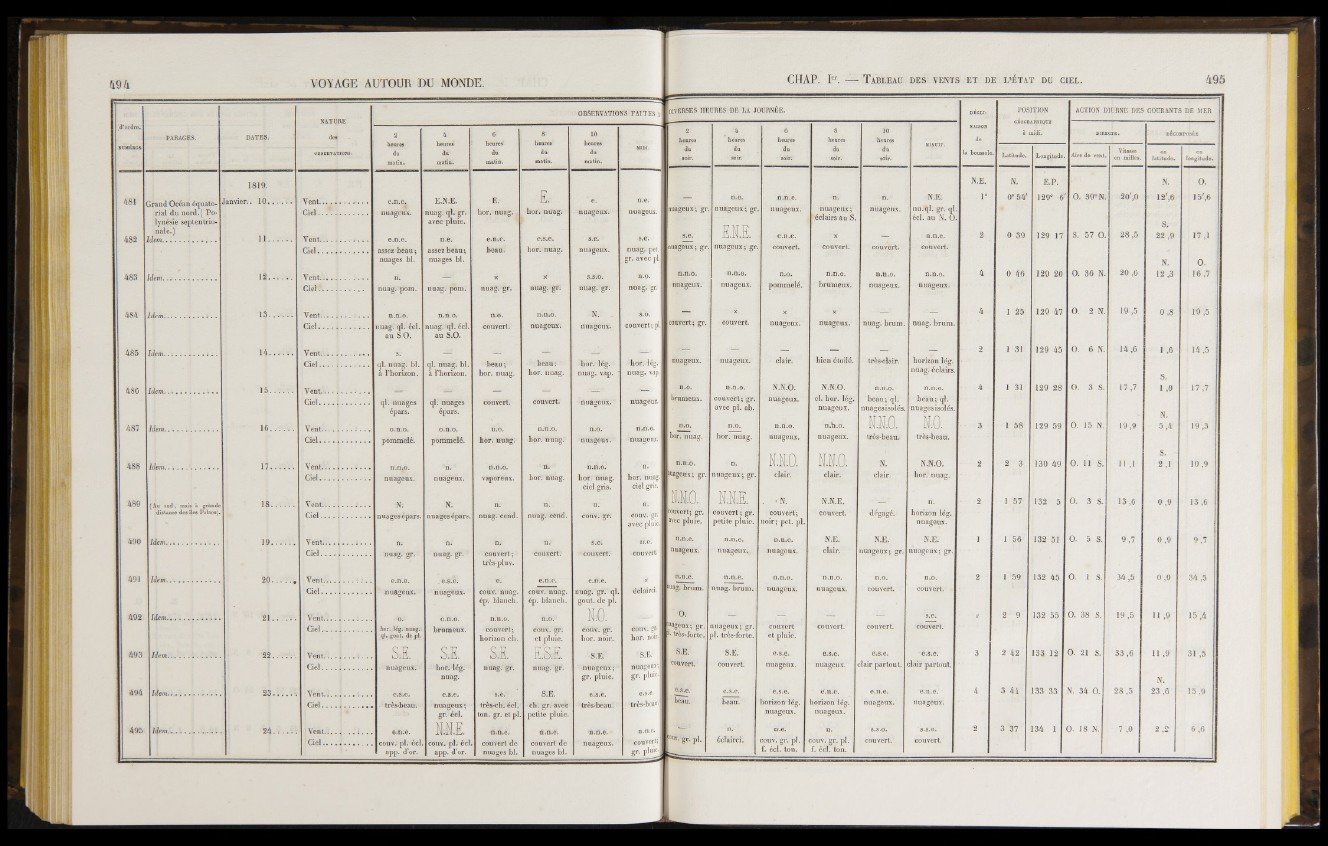 494
VOYAGE AUTOUR DU MONDE.
NUMÉROS d'ordre.
PARAGES.
DATES.
NATURE des OBSERVATIONS.
OBSERVATIONS FAITES
2 heures du matin.
4 heures du matin.
6 heures du matin.
8 heures du matin.
10 heures du matin.
MIDI.
1819.
481 Grand Océan équato-rial du nord. ( Po-lynésie septentrio-nale.) Janvier. 10...... Vent. e.n.e. E.N.E. E. E. e. n.e.
Ciel nuageux. nuag. ql. gr. avec pluie. hor. nuag. hor. nuag. nuageux. nuageux.
482 Idem. 11...... Vent. e.n.e. n.e. e.n.e. e.s.e. s.e. s.e.
Ciel. assez beau; nuages bl. assez beau; nuages bl. beau. hor. nuag. nuageux. nuag. pet. gr. avec pl.
483 Idem. 12...... Vent. n. — × × s.s.o. n.o.
Ciel. nuag. pom. nuag. pom. nuag. gr. nuag. gr. nuag. gr. nuag. gr.
484 Idem. 13...... Vent. n.n.o. n.n.o. n.o. n.n.o. N. s.o.
Ciel. nuag. ql. écl. au S O. nuag. ql. écl. au S.O. couvert. nuageux. nuageux. couvert; pl.
485 Idem. 14...... Vent. s. — — — — —
Ciel. ql. nuag. bl. à l'horizon. ql. nuag. bl. à l'horizon. beau; hor. nuag. beau; hor. nuag. hor. lég. nuag. vap. hor. lég. nuag. vap.
486 Idem. 15...... Vent. — — — — — —
Ciel. ql. nuages épars. ql. nuages épars. couvert. couvert. nuageux. nuageux.
487 Idem. 16...... Vent. o.n.o. o.n.o. n.o. n.n.o. n.o. n.n.o.
Ciel. pommelé. pommelé. hor. nuag. hor. nuag. nuageux. nuageux.
488 Idem. 17...... Vent. n.n.o. n. n.n.o. n. n.n.o. n.
Ciel. nuageux. nuageux. vaporeux. hor. nuag. hor. nuag. ciel gris. hor. nuag. ciel gris.
489 (Au sud, mais à grande distance des îles Pelew). 18...... Vent. N. N. n. n. n. n.
Ciel nuages épars. nuages épars. nuag. cend. nuag. cend. conv. gr. conv. gr. avec pluie
490 Idem. 19...... Vent. n. n. n. n. s.e. n.e.
Ciel nuag. gr. nuag. gr. couvert; très pluv. couvert. couvert. couvert.
491 Idem. 20...... Vent. e.n.o. e.s.e. e. e.n.e. e.n.e.
Ciel. nuageux. nuageux. couv. nuag. ép. blanch. couv. nuag. ép. blanch. nuag. gr. ql. gout. de pl. éclairci
492 Idem. 21...... Vent. o. e.n.o. n.n.o. n.o. N.O.
Ciel hor. lég. nuag. ql. gout. de pl. brumeux. couvert; horizon ch. conv. gr. et pluie. conv. gr. hor. noir. conv. gr. hor. noir.
493 Idem. 22...... Vent. S.E. S.E. S.E. E.S.E. S.E. S.E.
Ciel. nuageux. hor. lég. nuag. nuag. gr. nuag. gr. nuageux; gr. pluie. nuageux; gr. pluie.
494 Idem. 23...... Vent. e.s.e. e.s.e. s.e. S.E. e.s.e. e.s.e.
Ciel. très-beau. nuageux; gr. écl. très-ch. écl. ton. gr. et pl. ch. gr. avec petite pluie. très-beau. très-beau.
495 Idem. 24...... Vent. e.n.e. N.N.E. n.n.e. n.n.e. n.n.e. n.n.e.
Ciel. couv. pl. écl. app. d'or. couv. pl. écl. app. d'or. couvert de nuages bl. couvert de nuages bl. nuageux. couvert; gr. pluie.
CHAP. Ier. — TABLEAU DES VENTS ET DE L'ÉTAT DU CIEL.
495
DIVERSES HEURES DE LA JOURNÉE.
2 heures du soir.
4 heures du soir.
6 heures du soir.
8 heures du soir.
10 heures du soir.
MINUIT.
DÉCLINAISON de la boussole.
POSITION GÉOGRAPHIQUE à midi.
Latitude.
Longitude.
ACTION DIURNE DES COURANTS DE MER
DIRECTE.
Aire de vent.
Vitesse en milles.
DÉCOMPOSÉE
en latitude.
en longitude.
N.E. N. E.P. N. O.
— n.o. n.n.e. n. n. N.E. 1° 0° 54' 129° 6' O. 39° N. 20',0 12',6 15',6
nuageux; gr. nuageux; gr. nuageux. nuageux; éclairs au S. nuageux. nu.ql. gr. ql. écl. au N. O.
S.
s.e. E.N.E. e.n.e. × — n.n.e. 2 0 39 129 17 S. 57 O. 28 ,5 22 ,9 17 ,1
nuageux; gr. nuageux; gr. couvert. couvert. couvert. couvert.
N. O.
n.n.o. n.n.o. n.o. n.n.o. n.n.o. n.n.o. 4 0 46 129 20 O. 36 N. 20 ,6 12 ,3 16 ,7
nuageux. nuageux. pommelé. brumeux. nuageux. nuageux.
— × × × — — 4 1 25 129 47 O. 2 N. 19 ,5 0 ,8 19 ,5
couvert; gr. couvert. nuageux. nuageux. nuag. brum. nuag. brum.
— — — — — — 2 1 31 129 45 O. 6 N. 14 ,6 1 ,6 14 ,5
nuageux. nuageux. clair. bien étoilé. très-clair. horizon lég. nuag. éclairs.
S.
n.o. n.n.o. N.N.O. N.N.O. n.n.o. n.n.o. 4 1 31 129 28 O. 3 S. 17 ,7 1 ,0 17 ,7
brumeux. couvert; gr. avec pl. ab. nuageux. cl. hor. lég. nuageux. beau; ql. nuages isolés. beau; ql. nuages isolés.
N.
n.o. n.o. n.n.o. n.n.o. N.N.O. N.O. 3 1 58 129 59 O. 15 N. 19 ,9 5 ,4 19 ,3
hor. nuag. hor. nuag. nuageux. nuageux. très-beau. très-beau.
S.
n.n.o. n. N.N.O. N.N.O. N. N.N.O. 2 2 3 130 49 O. 11 S. 11 ,1 2 ,1 10 ,9
nuageux; gr. nuageux; gr. clair. clair. clair. hor. nuag.
N.N.O. N.N.E. N. N.N.E. — n. 2 1 57 132 5 O. 3 S. 13 ,6 0 ,9 13 ,6
couvert; gr. avec pluie. couvert; gr. petite pluie. couvert; noir; pet. pl. couvert. dégagé. horizon lég. nuageux.
n.n.e. n.n.e. n.n.e. N.E. N.E. N.E. 1 1 56 132 51 O. 5 S. 9 ,7 0 ,9 9 ,7
nuageux. nuageux. nuageux. clair. nuageux; gr. nuageux; gr.
n.n.e. n.n.e. n.n.o. n.n.o. n.o. n.o. 2 1 59 132 45 O. 1 S. 34 ,5 0 ,9 34 ,5
nuag. brum. nuag. brum. nuageux. nuageux. couvert. couvert.
O. — — — — s.e. 2 9 132 55 O. 38 S. 19 ,5 11 ,9 15 ,4
nuageux; gr. pl. très-forte. nuageux; gr. pl. très-forte. couvert et pluie. couvert. couvert. couvert.
S.E. S.E. e.s.e. e.s.e. e.s.e. e.s.e. 3 2 42 133 12 O. 21 S. 33 ,6 11 ,9 31 ,5
couvert. couvert. nuageux. nuageux. clair partout. clair partout.
N.
e.s.e. e.s.e. e.s.e. e.n.e. e.n.e. e.n.e. 4 3 44 133 33 N. 34 O. 28 ,5 23 ,6 15 ,9
beau. beau. horizon lég. nuageux. horizon lég. nuageux. nuageux. nuageux.
— n. n.e. n. s.s.o. s.s.o. 2 3 37 134 1 O. 18 N. 7 ,0 2 ,2 6 ,6
couv. gr. pl. éclairci. couv. gr. pl. f. écl. ton. couv. gr. pl. f. écl. ton. couvert. couvert.